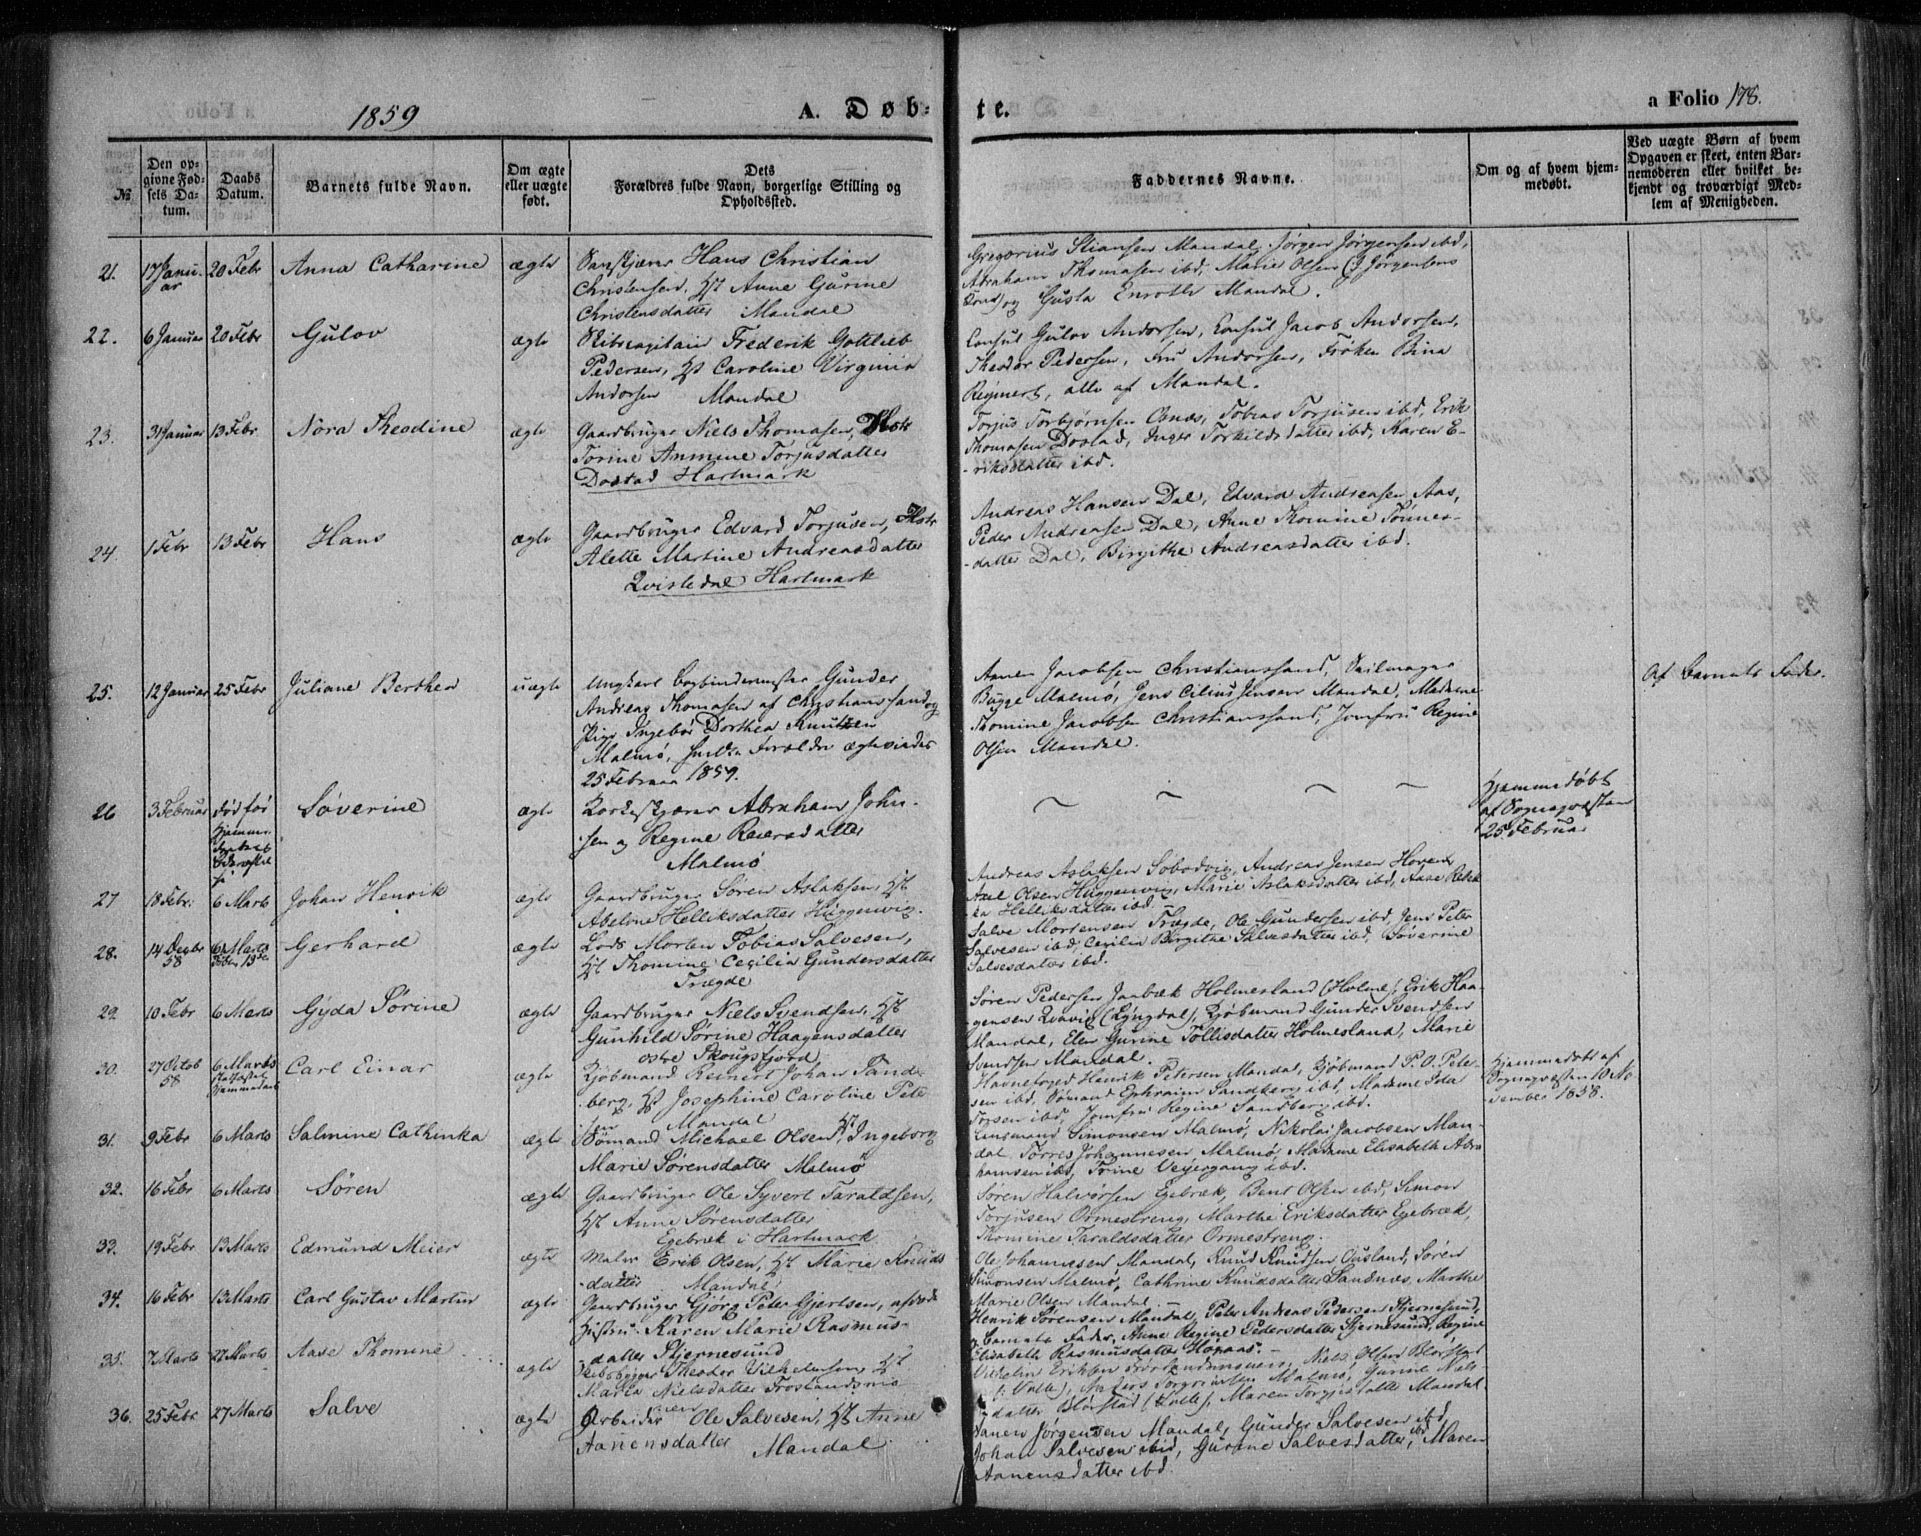 1859
A. Døb-
te.
a Folio 178.
№
Den op-
givne Fød-
sels Da-
tum.
Daabs
Datum.
Barnets fulde Navn.
Om ægte
eller uægte
født.
Dets
Forældres fulde Navn, borgerlige Stilling og
Opholdssted.
Faddernes Navne.
Om og af hvem hjem-
medøbt.
Ved uægte Børn af hvem
Opgaven er skeet, enten Bar-
nemoderen eller hvilket be-
kjendt og troværdigt Med-
lem af Menigheden.
21. 17 Janu-
ar
20 Febr
Anna Catharine
ægte
Hans Christian
Christensen, Hst Anne Gurine
Christensdatter Mandal
Gregorius Stiansen Mandal, Jørgen Jørgensen ibd,
Abraham Thomasen ibd, Marie Olsen (J Jørgensens
Kone) og Gusta Enroth Mandal.
22. 6 Januar 20 Febr
Gulov
ægte
Skibscapitain Frederik Gottlieb
Pedersen, Hst Caroline Virginia
Andorsen Mandal
Consul Gulov Andorsen, Consul Jacob Andorsen,
Theodor Pedersen, Fru Andorsen, Frøken Bina
Reginert, alle af Mandal.
23. 31 Januar 13 Febr
Nora Theodine
ægte
Gaardbruger Niels Thomasen, Hstr
Torine Anmine Torjusdatter
Dostad Hartmark
Torjus Torbjørnsen Osnæs, Tobias Torjusen ibd, Erik
Thomasen Dostad, Inger Torkildsdatter ibd, Karen E-
-riksdatter ibd.
24. 1 Febr 13 Febr
Hans
ægte
Gaardbruger Edvard Torjusen, Hstr
Alette Martine Andreasdatter
Qvistedal Hartmark
Andreas Hansen Dal, Edvard Andreasen Aas,
Peder Andreasen Dal, Anne Thomine Tønnes-
-datter Dal, Birgithe Andreasdatter ibd.
25. 12 Januar 25 Febr
Juliane Berthea
uægte
Ungkarl Bogbindermester Gunder
Andreas Thomasen af Christianssand og
Pige Ingebor Dorthea Knutzen
Malmø, Forældre ægteviedes
25 Februar 1859.
Anne Jacobsen Christianssand, Seilmager
Bugge Malmø, Jens Cilius Jensen Mandal, Madame
Thomine Jacobsen Christianssand, Jomfru Regine
Olsen Mandal.
Af Barnets Fader.
26 3 Februar
død før
Hjemme-
Søverine
ægte
Abraham John-
sen og Regine Reiersdatter
Malmø
Hjemmedøbt
af Sognepresten
25 Februar
27 18 Febr. 6 Marts
Johan Henrik
ægte
Gaardbruger Søren Aslaksen, Hst
Abelone Helliksdatter Huggenvig.
Andreas Aslaksen Sodevig, Andreas Jensen Haven
Axel Olsen Huggenvig, Marie Aslaksdatter ibd, Aase Rebek-
ka Helliksdatter ibd.
28. 14 Decbr
58
6 Marts
Gerhard
ægte
Lods Morten Tobias Salvesen,
Hst Thomine Cecilia Gundersdatter
Trægde
Salve Mortensen Trægde, Ole Gundersen ibd, Jens Peter
Salvesen ibd, Cecilia Birgithe Salvesdatter ibd, Søverine
Salvesdatter ibd.
29. 10 Febr 6 Marts
Gyda Sørine
ægte
Gaardbruger Niels Svendsen, Hst
Gunhild Sørine Haagensdatter
østre Skougsfjord,
Søren Pedersen Jaabæk Holmesland (Holme), Erik Haa-
-gensen Qvavig (Lyngdal), Kjøbmand Gunder Svendsen
Mandal, Elen Gurine Tollisdatter Holmesland, Marie
Svendsen Mandal.
30. 27 Octob
58
6 Marts
Carl Einar
ægte
Kjøbmand Reinert Johan Sand-
berg, Hst Josephine Caroline Peter-
sen Mandal
Havnefoged Henrik Petersen Mandal, Kjøbmand P. O. Peter-
sen ibd, Sømand Ephraim Sandberg ibd, Madame Ida
ibd, Jomfru Regine Sandberg ibd.
Hjemmedøbt af
Sognepresten 10 No-
vember 1858.
31. 9 Febr 6 Marts
Salmine Cathinka
ægte
Sømand Michael Olsen, Hst Ingeborg
Marie Sørensdatter Malmø
Simonsen Malmø, Nikolai Jacobsen Man-
dal, Torres Johannesen Malmø, Madame Elisabeth Abra-
hamsen ibd, Trine Veiergang ibd.
32. 16 Febr 6 Marts
Søren
ægte
Gaardbruger Ole Syvert Taraldsen,
Hst Anne Sørensdatter
Egebræk i Hartmark
Søren Halvorsen Egebræk, Bent Olsen ibd, Simon
Torjusen Ormestreng, Marthe Eriksdatter Egebræk,
Thomine Taraldsdatter Ormestreng.
33. 19 Febr 13 Marts
Edmund Meier
ægte
Maler Erik Olsen, Hst Marie Knuds-
-datter Mandal
Ole Johannesen Mandal, Knud Knudsen Ousland, Søren
Simonsen Malmø, Cathrine Knudsdatter Sandnæs, Marthe
Marie Olsen Mandal.
34. 16 Febr 13 Marts
Carl Gustav Martin
ægte
Gaardbruger Gjørg Peter Gjertsen, afdøde
Hustru Karen Marie Rasmus-
-datter Stjernesund
Henrik Sørensen Mandal, Peter Andreas Pedersen Stjernesund,
Barnets Fader, Anne Regine Pedersdatter Stjernesund, Regine
Elisabeth Rasmusdatter Høgaas.
35. 7 Marts 27 Marts
Aase Thomine
ægte
Skibsbygger Theodor Vilhelmsen, Hst
Maria Nielsdatter Froslandsmo-
nen
Vilhelm Eriksen Froslandsmonen, Niels Olsen Blørstad
(Valle), Anders Torgrimsen Malmø, Gunne Niels-
datter Blørstad (Valle), Maren Torgjusdatter Mandal
36. 25 Febr 27 Marts
Salve
ægte
Arbeider Ole Salvesen, Hst Anne
Aanensdatter Mandal
Aanen Jørgensen Mandal, Gunder Salvesen ibd,
Johan Salvesen ibid, Gurine Salvesdatter ibd, Maren
Aanensdatter ibd.